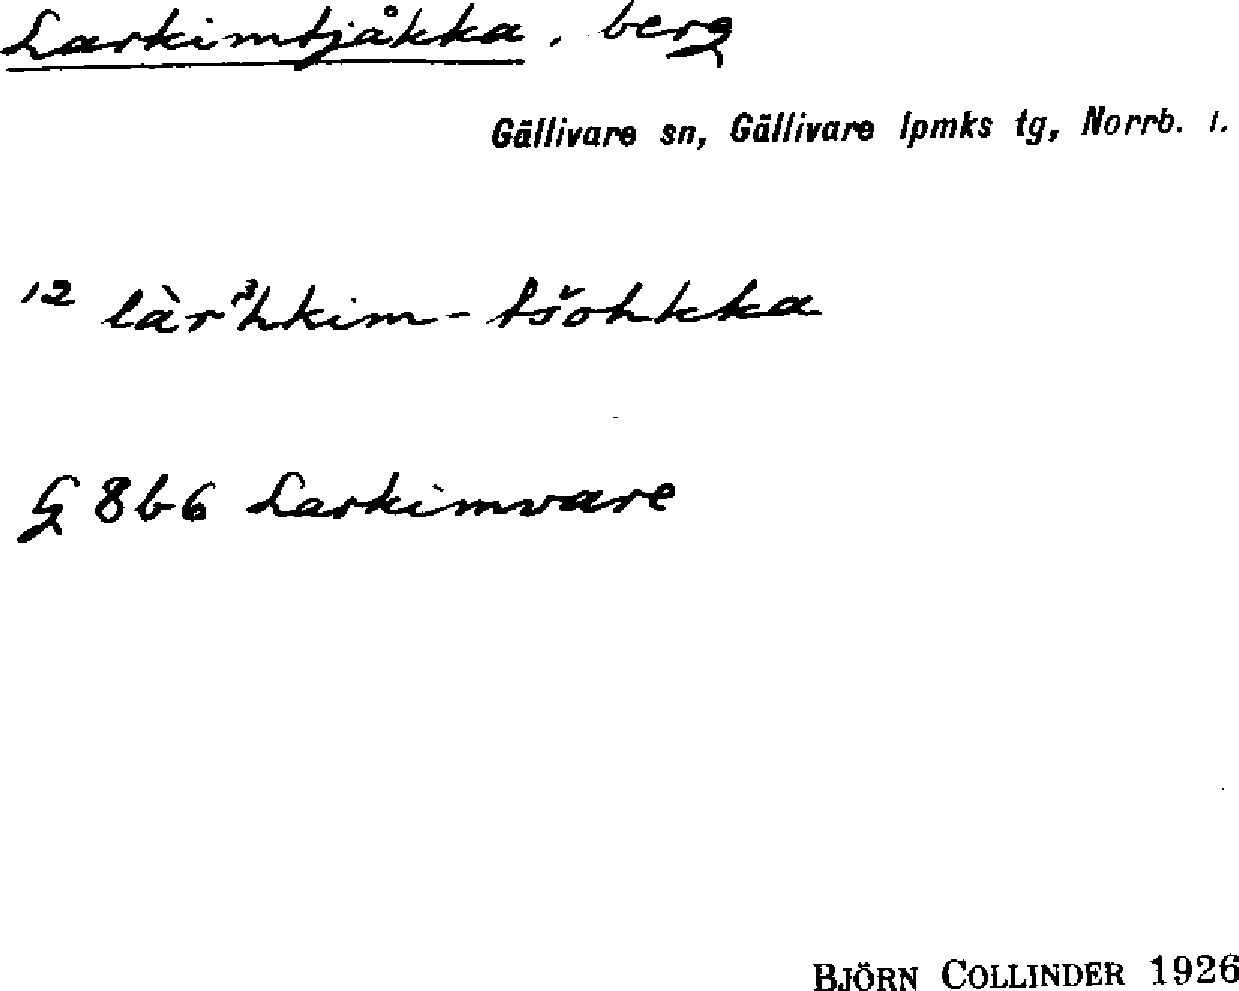 Larkimtjåkka, berg
Gällivare sn, Gällivare lpmks tg, Norrb. l.
12 làrᵌhkim-tšohkka
G 8b6 Larkimvare
BJÖRN COLLINDER 1926